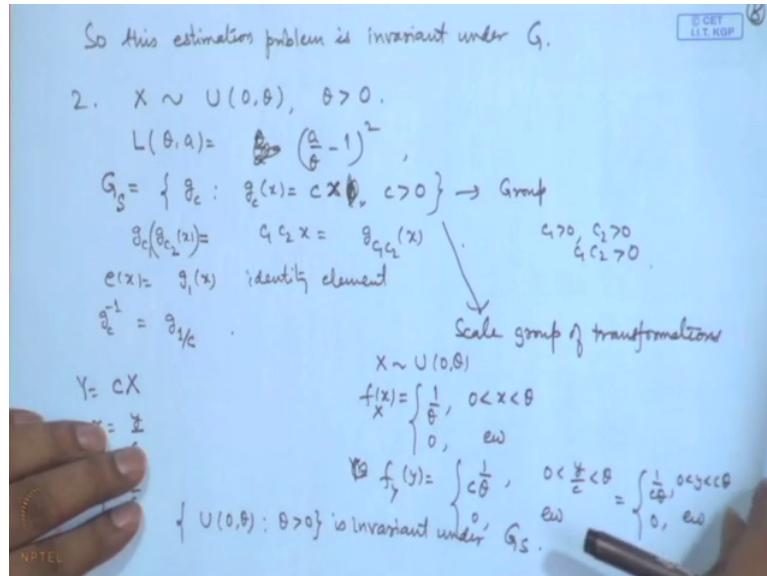 So this estimation problem is invariant under G.
© CET
I.I.T. KGP
8
2. X ~ U(0,θ), θ>0.
L(θ,a) = (a/θ - 1)²,
G_S = { g_c : g_c(x) = c x, c>0 } → Group
g_{c_1}(g_{c_2}(x)) = c_1 c_2 x = g_{c_1c_2}(x). c_1>0, c_2>0
c_1c_2>0.
e(x) = g_1(x) identity element
g_c^{-1} = g_{1/c}.
Scale group of transformations
X ~ U(0,θ)
Y = cX
f_X(x) = { 1/θ, 0<x<θ
0, ew
x = y
f_Y(y) = { 1/cθ, 0<y/c<θ = { 1/cθ, 0<y<cθ
0, ew 0, ew
{ U(0,θ) : θ>0} is invariant under G_S.
NPTEL